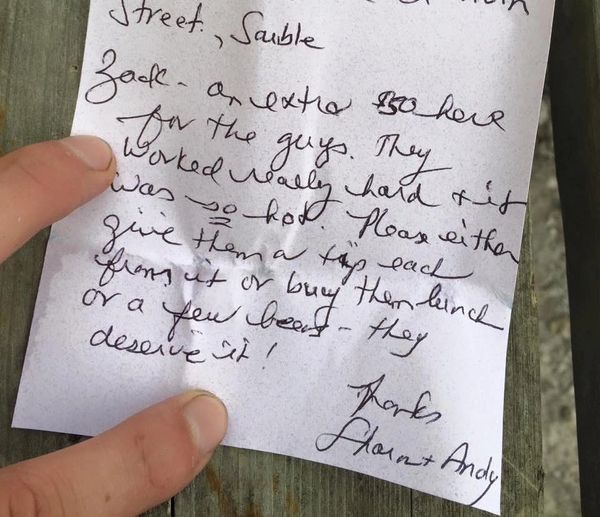 Street., Sauble
Zack - an extra $50 here
for the guys. They
worked really hard & it
was so hot. Please either
give them a tip each
from it or buy them lunch
or a few beers - they
deserve it!
Thanks
Sharon + Andy